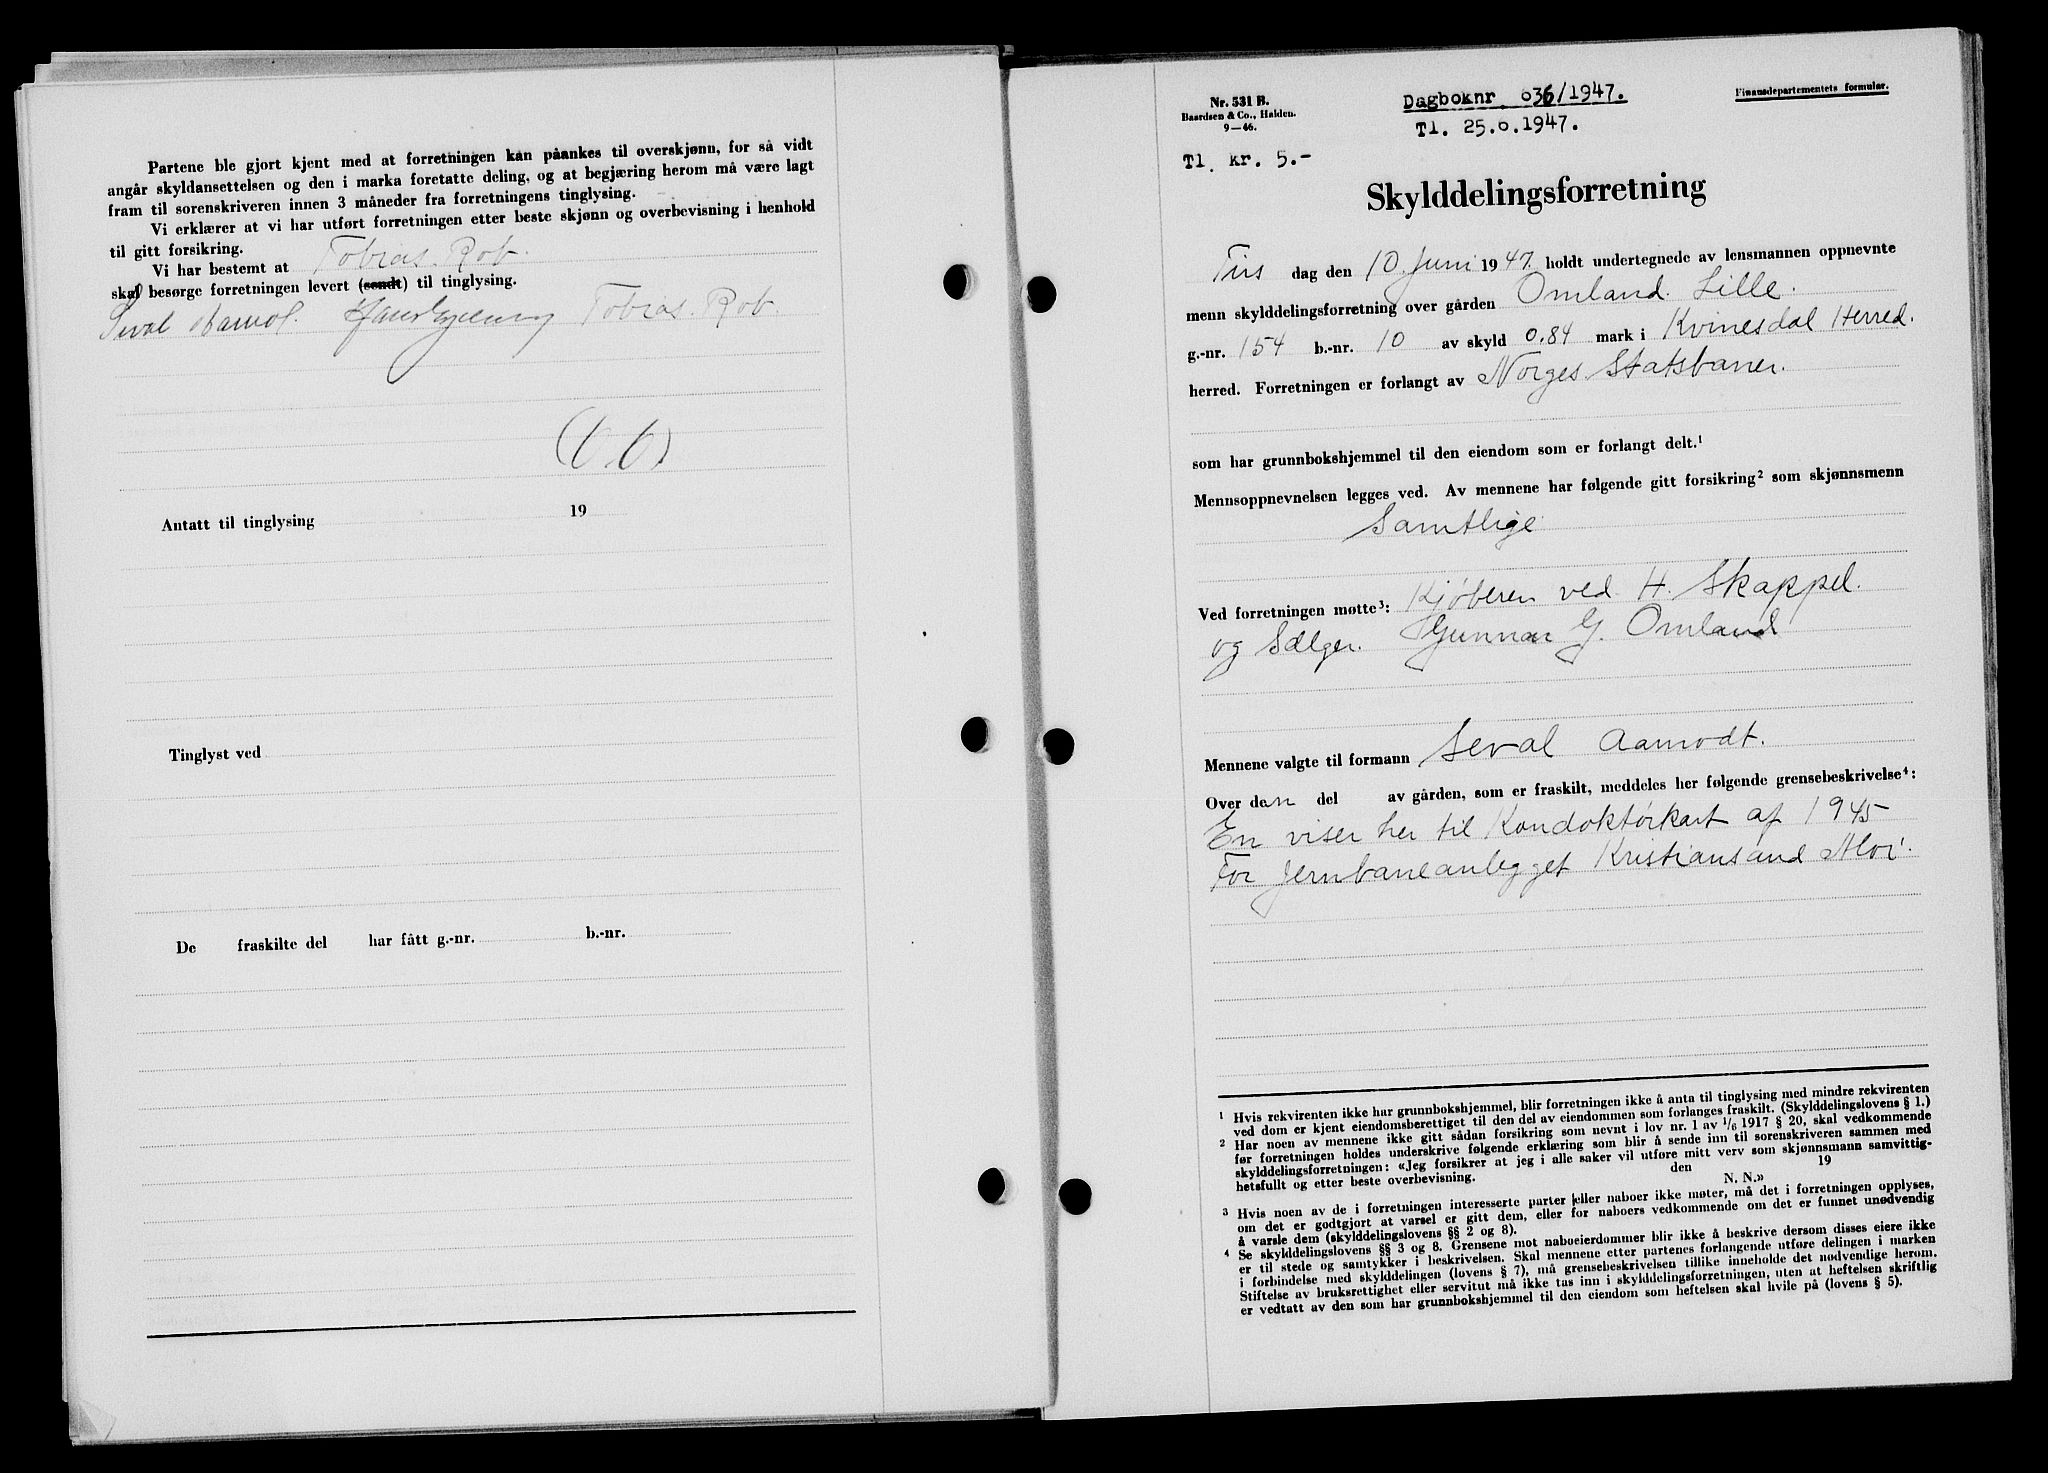 Partene ble gjort kjent med at forretningen kan påankes til overskjønn, for så vidt
angår skyldansettelsen og den i marka foretatte deling, og at begjæring herom må være lagt
fram til sorenskriveren innen 3 måneder fra forretningens tinglysing.
Vi erklærer at vi har utført forretningen etter beste skjønn og overbevisning i henhold
til gitt forsikring.
Vi har bestemt at Tobias. Rob.
skal besørge forretningen levert (sendt) til tinglysing.
Seval Tobias. Rob.
Antatt til tinglysing 19
Tinglyst ved
De fraskilte del har fått g.-nr. b.-nr.
Nr. 531 B.
Baardsen & Co., Halden.
9—46.
Dagboknr 636/1947.
Tl. 25.6.1947.
Finansdepartementets formular.
Tl. kr. 5.-
Skylddelingsforretning
Tirs dag den 10. Juni 1947. holdt undertegnede av lensmannen oppnevnte
menn skylddelingsforretning over gården Omland. Lille.
g.-nr. 154 b.-nr. 10 av skyld 0.84 mark i Kvinesdal Herred.
herred. Forretningen er forlangt av Norges Statsbaner.
som har grunnbokshjemmel til den eiendom som er forlangt delt.¹
Mennsoppnevnelsen legges ved. Av mennene har følgende gitt forsikring² som skjønnsmenn
Samtlige
Ved forretningen møtte³: Kjøberen ved H. Skappel.
og Sælger. Gunnar G. Omland
Mennene valgte til formann Seval Aamodt.
Over den del av gården, som er fraskilt, meddeles her følgende grensebeskrivelse⁴:
En viser her til Kondoktørkart af 1945
For Jernbaneanlegget Kristiansand Moi.
¹ Hvis rekvirenten ikke har grunnbokshjemmel, blir forretningen ikke å anta til tinglysing med mindre rekvirenten
ved dom er kjent eiendomsberettiget til den del av eiendommen som forlanges fraskilt. (Skylddelingslovens § 1.)
² Har noen av mennene ikke gitt sådan forsikring som nevnt i lov nr. 1 av 1/6 1917 § 20, skal vedkommende
før forretningen holdes underskrive følgende erklæring som blir å sende inn til sorenskriveren sammen med
skylddelingsforretningen: «Jeg forsikrer at jeg i alle saker vil utføre mitt verv som skjønnsmann samvittig-
hetsfullt og etter beste overbevisning. den 19
N. N.»
³ Hvis noen av de i forretningen interesserte parter eller naboer ikke møter, må det i forretningen opplyses,
om det er godtgjort at varsel er gitt dem, eller for naboers vedkommende om det er funnet unødvendig
å varsle dem (skylddelingslovens §§ 2 og 8).
⁴ Se skylddelingslovens §§ 3 og 8. Grensene mot naboeierdommer blir ikke å beskrive dersom disses eiere ikke
er til stede og samtykker i beskrivelsen. Skal mennene etter partenes forlangende utføre delingen i marken
i forbindelse med skylddelingen (lovens § 7), må grensebeskrivelsen tillike inneholde det nødvendige herom.
Stiftelse av bruksrettighet eller servitut må ikke tas inn i skylddelingsforretningen, uten at heftelsen skriftlig
er vedtatt av den som har grunnbokshjemmel til den eiendom som heftelsen skal hvile på (lovens § 5).